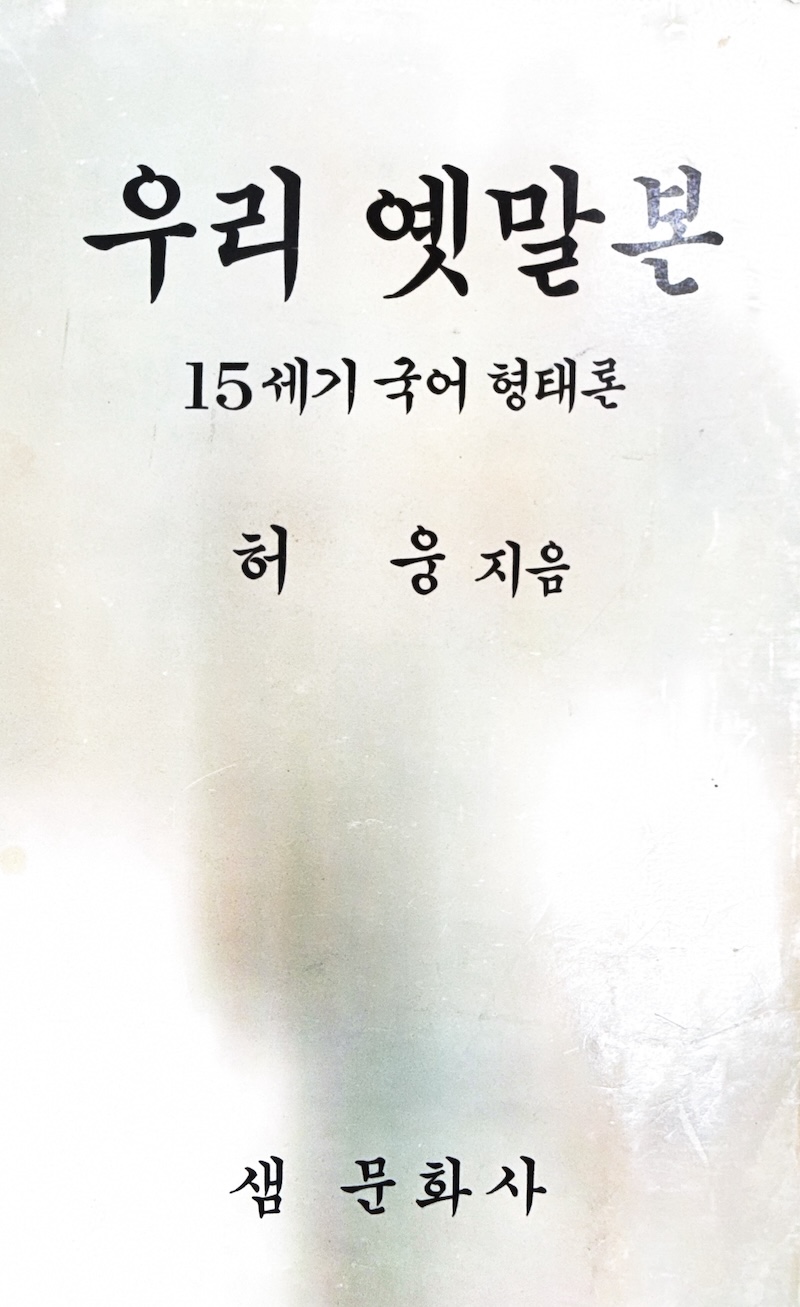 우리 옛말본
15세기 국어 형태론
허 웅 지음
샘 문화사